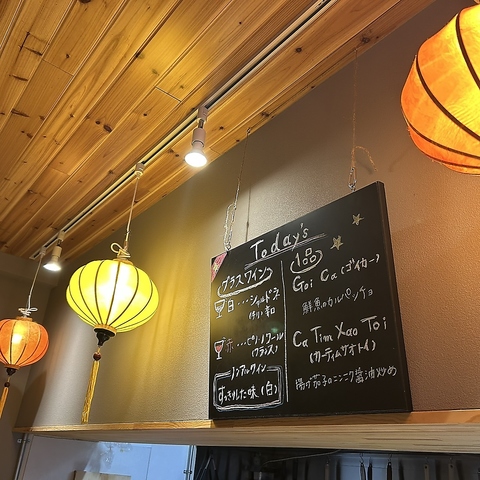 Today's
グラスワイン
白・・・シャルドネ
(チリ) 辛口
赤・・・ピノ・ノワール
(フランス)
ノンアルワイン
すっきりした味(白)
1品
Goi Ca (ゴイカー)
鮮魚のカルパッチョ
Ca Tim Xao Toi
(カーティムサオトイ)
揚げ茄子のニンニク醤油炒め